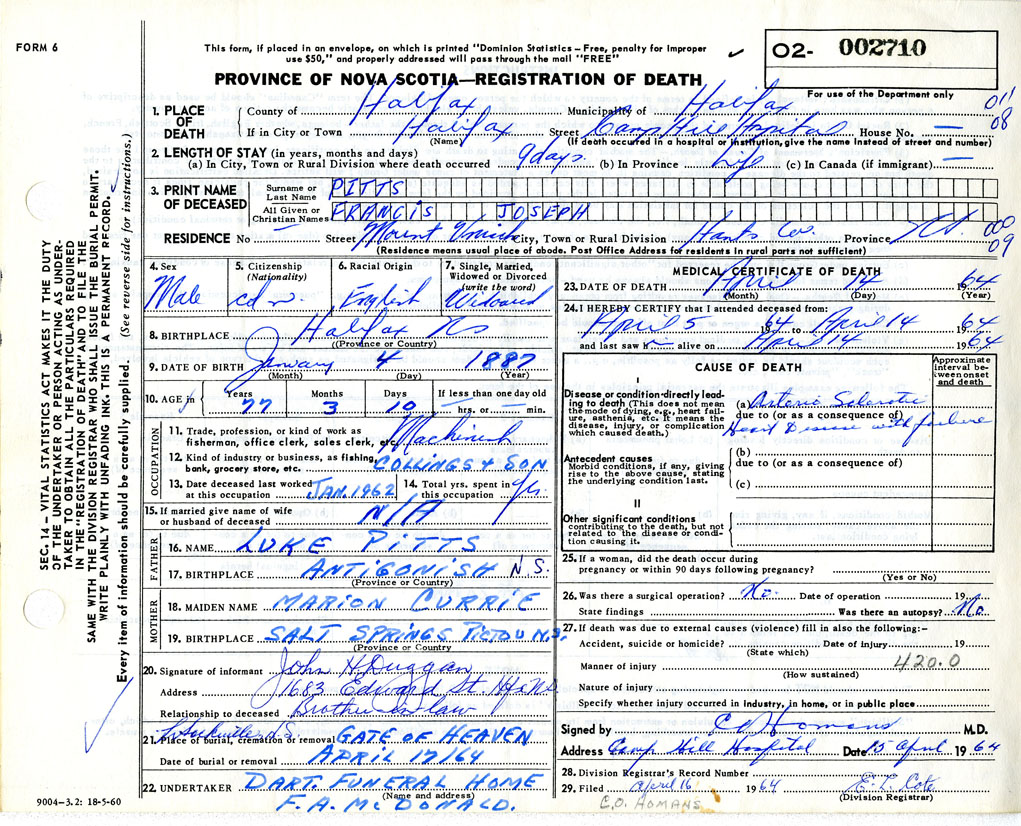 FORM 6
This form, if placed in an envelope, on which is printed "Dominion Statistics – Free, penalty for improper
use $50," and properly addressed will pass through the mail "FREE"
O2- 002710
For use of the Department only
PROVINCE OF NOVA SCOTIA—REGISTRATION OF DEATH
SEC. 14 – VITAL STATISTICS ACT MAKES IT THE DUTY
OF THE UNDERTAKER OR PERSON ACTING AS UNDER-
TAKER TO OBTAIN ALL THE PARTICULARS REQUIRED
IN THE "REGISTRATION OF DEATH" AND TO FILE THE
SAME WITH THE DIVISION REGISTRAR WHO SHALL ISSUE THE BURIAL PERMIT.
WRITE PLAINLY WITH UNFADING INK. THIS IS A PERMANENT RECORD.
Every item of information should be carefully supplied. (See reverse side for instructions.)
1. PLACE OF DEATH
County of Halifax Municipality of Halifax 011
If in City or Town Halifax Street Camp Hill Hospital House No. — 08
(Name) (If death occurred in a hospital or institution, give the name instead of street and number)
2. LENGTH OF STAY (in years, months and days)
(a) In City, Town or Rural Division where death occurred 9 days (b) In Province Life (c) In Canada (if immigrant) —
3. PRINT NAME OF DECEASED
Surname or Last Name PITTS
All Given or Christian Names FRANCIS JOSEPH
RESIDENCE No — Street Mount Uniacke City, Town or Rural Division Hants Co. Province N.S. 00
09
(Residence means usual place of abode. Post Office Address for residents in rural parts not sufficient)
4. Sex Male
5. Citizenship (Nationality) cdn.
6. Racial Origin English
7. Single, Married, Widowed or Divorced (write the word) Widowed
8. BIRTHPLACE Halifax NS
(Province or Country)
9. DATE OF BIRTH January 4 1887
(Month) (Day) (Year)
10. AGE in
Years 77 Months 3 Days 10 If less than one day old — hrs. or — min.
OCCUPATION
11. Trade, profession, or kind of work as
fisherman, office clerk, sales clerk, etc. Machinist
12. Kind of industry or business, as fishing,
bank, grocery store, etc. COLLINGS & SON
13. Date deceased last worked
at this occupation JAN. 1962
14. Total yrs. spent in
this occupation
15. If married give name of wife
or husband of deceased N/A
FATHER
16. NAME LUKE PITTS
17. BIRTHPLACE ANTIGONISH N.S.
(Province or Country)
MOTHER
18. MAIDEN NAME MARION CURRIE
19. BIRTHPLACE SALT SPRINGS PICTOU N.S.
(Province or Country)
20. Signature of informant John H. Duggan
Address 1683 Edward St. Hfx NS
Relationship to deceased Brother-in-law
21. Place of burial, cremation or removal GATE OF HEAVEN
Date of burial or removal APRIL 17/64
22. UNDERTAKER DART. FUNERAL HOME
(Name and address)
F. A. McDONALD.
9004–3.2: 18-5-60
MEDICAL CERTIFICATE OF DEATH
23. DATE OF DEATH April 14 1964
(Month) (Day) (Year)
24. I HEREBY CERTIFY that I attended deceased from:
April 5 1964 to April 14 1964
and last saw h — alive on April 14 1964
CAUSE OF DEATH
Approximate interval between onset and death
I
Disease or condition directly leading
to death (This does not mean
the mode of dying, e.g., heart failure,
asthenia, etc. It means the
disease, injury, or complication
which caused death.)
(a) Arterio Sclerotic
due to (or as a consequence of)
Heart Disease with failure
Antecedent causes
Morbid conditions, if any, giving
rise to the above cause, stating
the underlying condition last.
(b)
due to (or as a consequence of)
(c)
II
Other significant conditions
contributing to the death, but not
related to the disease or condition
causing it.
25. If a woman, did the death occur during
pregnancy or within 90 days following pregnancy?
(Yes or No)
26. Was there a surgical operation? No. Date of operation 19
State findings Was there an autopsy? No.
27. If death was due to external causes (violence) fill in also the following:–
Accident, suicide or homicide? Date of injury 19
(State which)
420.0
Manner of injury
(How sustained)
Nature of injury
Specify whether injury occurred in industry, in home, or in public place
Signed by C O Homans M.D.
Address Camp Hill Hospital Date 15 April 1964
28. Division Registrar's Record Number
29. Filed April 16 1964 E. L. Cote
(Division Registrar)
C.O. HOMANS